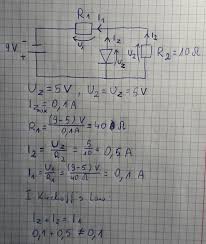 R1
I1
9V
+
-
U1
Iz
Uz
I2
U2
R2=10Ω
Uz = 5V, U2 = Uz = 5V
Izmax = 0,1A
R1 = (9-5)V / 0,1A = 40Ω
I2 = U2 / R2 = 5 / 10 = 0,5A
I1 = U1 / R1 = (9-5)V / 40Ω = 0,1A
I Kirchoff's Law
Iz + I2 = I1
0,1 + 0,5 ≠ 0,1